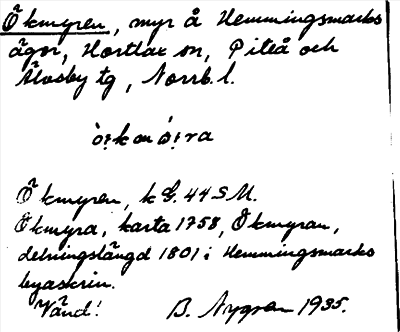 Åkmyren, myr å Hemmingsmarks
ägor, Hortlax sn, Piteå och
Älvsby tg, Norrb. l.
Åkmyren, k G. 44 S M.
Åkmyra, karta 1758, Åkmyran,
delningslängd 1801 i Hemmingsmarks
byaskrin.
Vänd! B. Nygren 1935.